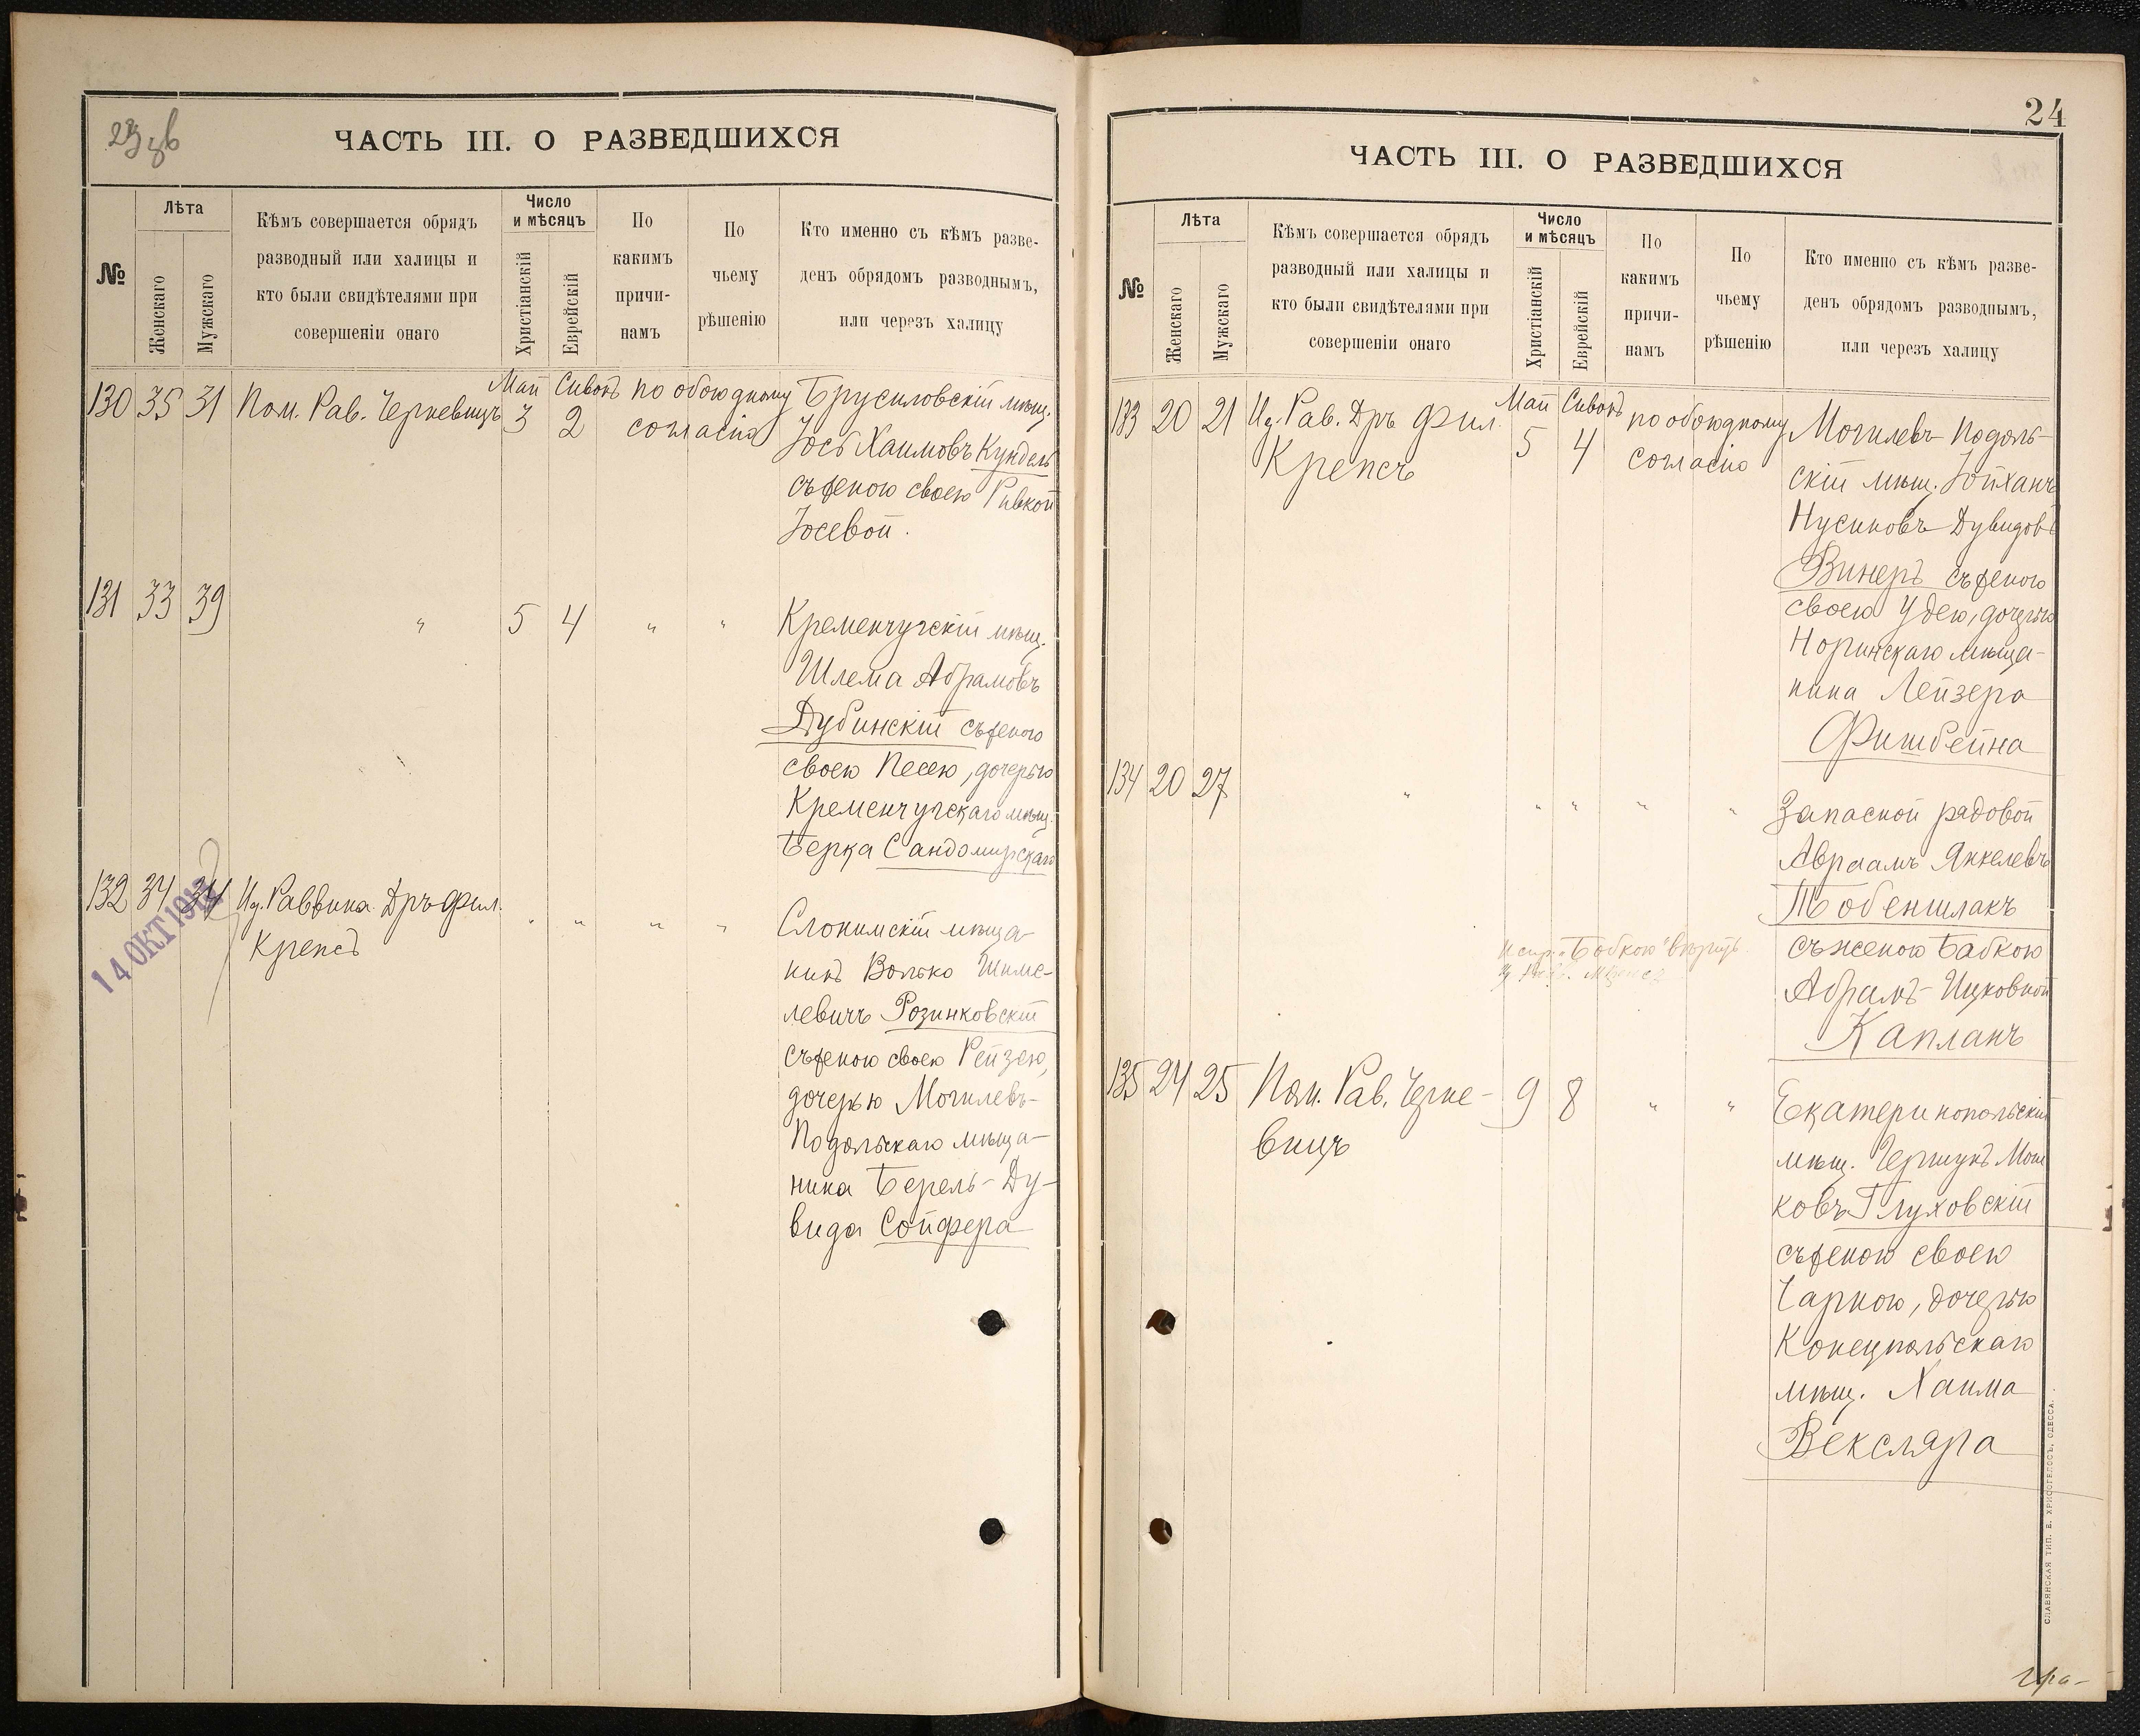 ЧАСТЬ III. О РАЗВЕДШИХСЯ
№
Лѣта
Женскаго
Мужскаго
Кѣмъ совершается обрядъ
разводный или халицы и
кто были свидѣтелями при
совершеніи онаго
Число
и мѣсяцъ
Христіанскій
Еврейскій
По
какимъ
причи-
намъ
По
чьему
рѣшенію
Кто именно съ кѣмъ разве-
денъ обрядомъ разводнымъ,
или черезъ халицу
130 35 31 Пом. Рав. Черкевицъ Май 3 Сивонъ 2 по обоюдному
согласію
Брусиловскій мѣщ.
Іось Хаимовъ Кундель
съ женою своею Ривкой
Іосевой.
131 33 39 " 5 4 " "
Кременчугскій мѣщ.
Шлема Абрамовъ
Дубинскій съ женою
своею Песею, дочерью
Кременчугскаго мѣщ.
Берка Сандомирскаго
132 34 34 Иц. Раввина Дръ Фил.
Крепсъ
" " " "
14 ОКТ 191
Слонимскій мѣща-
нинъ Волько Шиме-
левичъ Розинковскій
съ женою своею Рейзею,
дочерью Могилевъ-
Подольскаго мѣща-
нина Берель-Ду-
вида Сойфера
24
ЧАСТЬ III. О РАЗВЕДШИХСЯ
№
Лѣта
Женскаго
Мужскаго
Кѣмъ совершается обрядъ
разводный или халицы и
кто были свидѣтелями при
совершеніи онаго
Число
и мѣсяцъ
Христіанскій
Еврейскій
По
какимъ
причи-
намъ
По
чьему
рѣшенію
Кто именно съ кѣмъ разве-
денъ обрядомъ разводнымъ,
или черезъ халицу
133 20 21 Иц. Рав. Дръ Фил.
Крепсъ
Май 5 Сивонъ 4 по обоюдному
согласію
Могилевъ-Подоль-
скій мѣщ. Іойханъ
Нусиновъ Дувидовъ
Винеръ съ женою
своею Удею, дочерью
Норинскаго мѣща-
нина Лейзера
Фишбейна
134 20 27 " " " " "
Запасной рядовой
Авраамъ Янкелевъ
Тобеншлакъ
съ женою Бабкою
Абрамъ-Ицковной
Капланъ
"Бобкою"
135 24 25 Пом. Рав. Черке-
вицъ
9 8 " "
Екатеринопольскій
мѣщ. Гершунъ Мош
ковъ Глуховскій
съ женою своею
Чарною, дочерью
Конецпольскаго
мѣщ. Хаима
Векслера
СЛАВЯНСКАЯ ТИП. Е. ХРИСОГЕЛОСЪ, ОДЕССА.